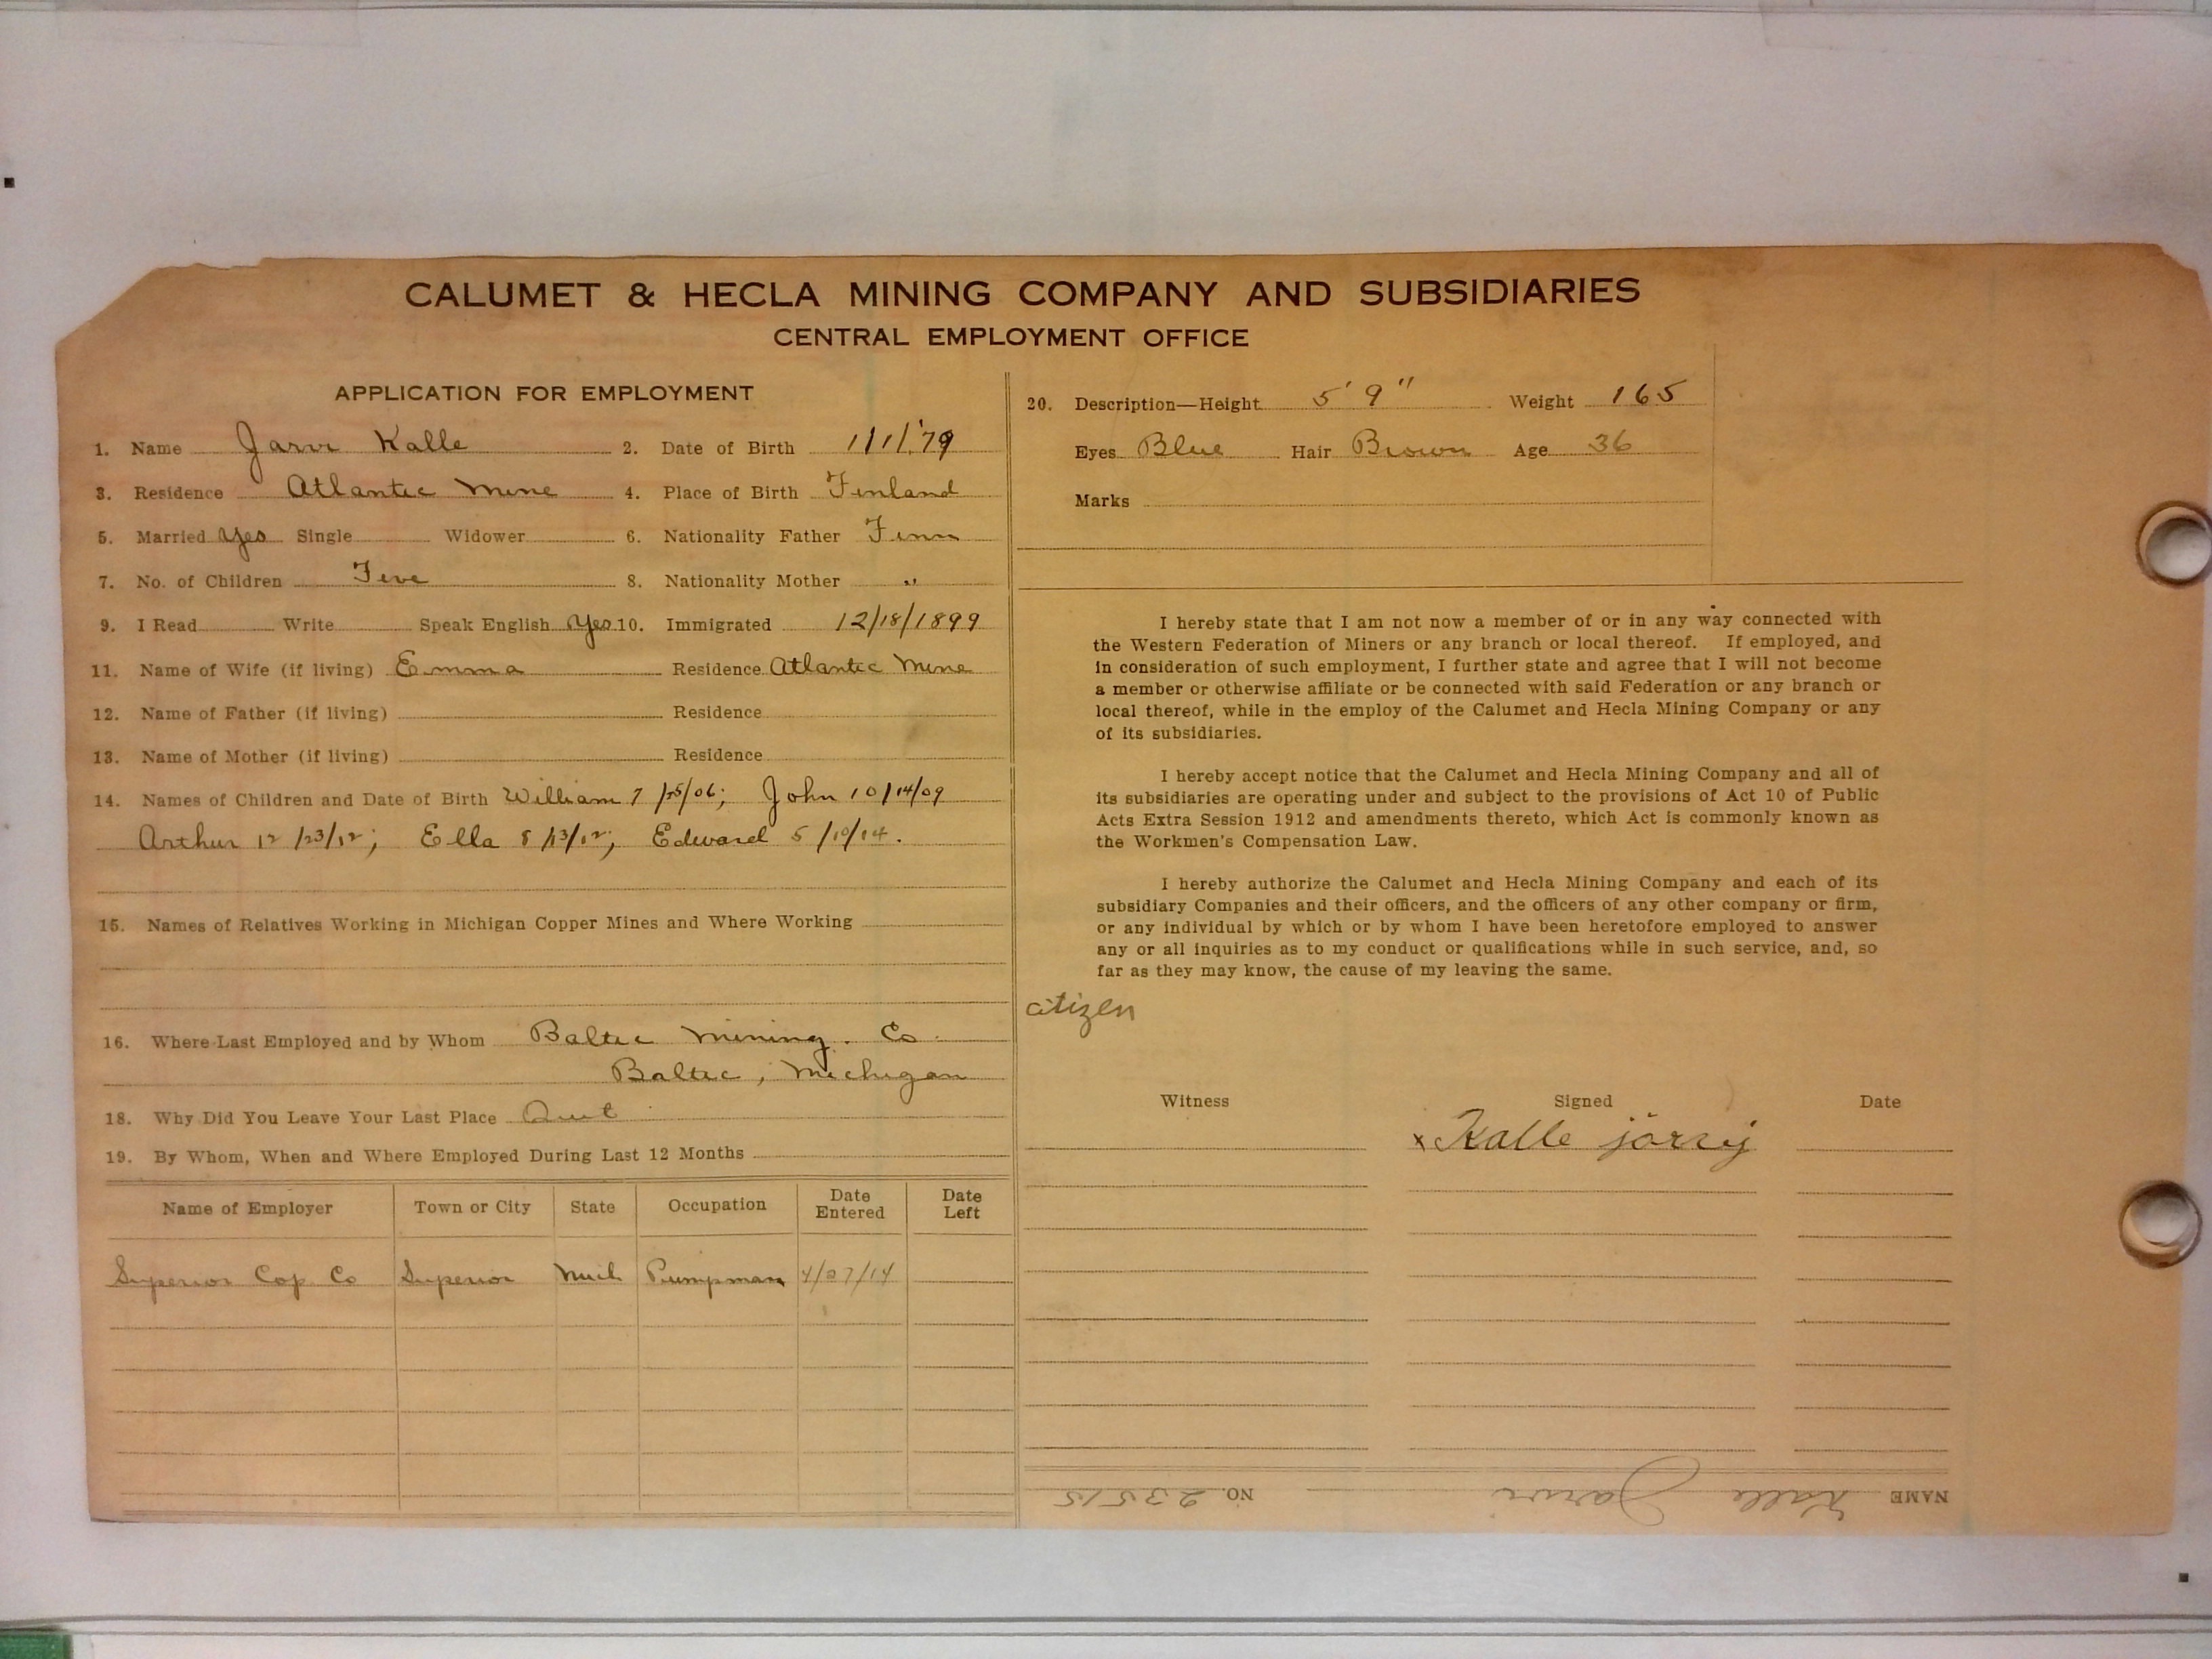 CALUMET & HECLA MINING COMPANY AND SUBSIDIARIES
CENTRAL EMPLOYMENT OFFICE
APPLICATION FOR EMPLOYMENT
1. Name Jarvi Kalle 2. Date of Birth 1/1/'79
3. Residence Atlantic Mine 4. Place of Birth Finland
5. Married Yes Single Widower 6. Nationality Father Finn
7. No. of Children Five 8. Nationality Mother "
9. I Read Write Speak English Yes 10. Immigrated 12/18/1899
11. Name of Wife (if living) Emma Residence Atlantic Mine
12. Name of Father (if living) Residence
13. Name of Mother (if living) Residence
14. Names of Children and Date of Birth William 7/25/06; John 10/14/09
Arthur 12/23/12; Ella 8/13/12; Edward 5/10/14.
15. Names of Relatives Working in Michigan Copper Mines and Where Working
16. Where Last Employed and by Whom Baltic Mining. Co
Baltic, Michigan
18. Why Did You Leave Your Last Place Quit
19. By Whom, When and Where Employed During Last 12 Months
Name of Employer Town or City State Occupation Date Entered Date Left
Superior Cop Co Superior Mich Pumpman 4/27/14
20. Description—Height 5' 9" Weight 165
Eyes Blue Hair Brown Age 36
Marks
I hereby state that I am not now a member of or in any way connected with
the Western Federation of Miners or any branch or local thereof. If employed, and
in consideration of such employment, I further state and agree that I will not become
a member or otherwise affiliate or be connected with said Federation or any branch or
local thereof, while in the employ of the Calumet and Hecla Mining Company or any
of its subsidiaries.
I hereby accept notice that the Calumet and Hecla Mining Company and all of
its subsidiaries are operating under and subject to the provisions of Act 10 of Public
Acts Extra Session 1912 and amendments thereto, which Act is commonly known as
the Workmen's Compensation Law.
I hereby authorize the Calumet and Hecla Mining Company and each of its
subsidiary Companies and their officers, and the officers of any other company or firm,
or any individual by which or by whom I have been heretofore employed to answer
any or all inquiries as to my conduct or qualifications while in such service, and, so
far as they may know, the cause of my leaving the same.
citizen
Witness Signed Date
x Kalle järvij
NAME Kalle Jarvi NO. 23515